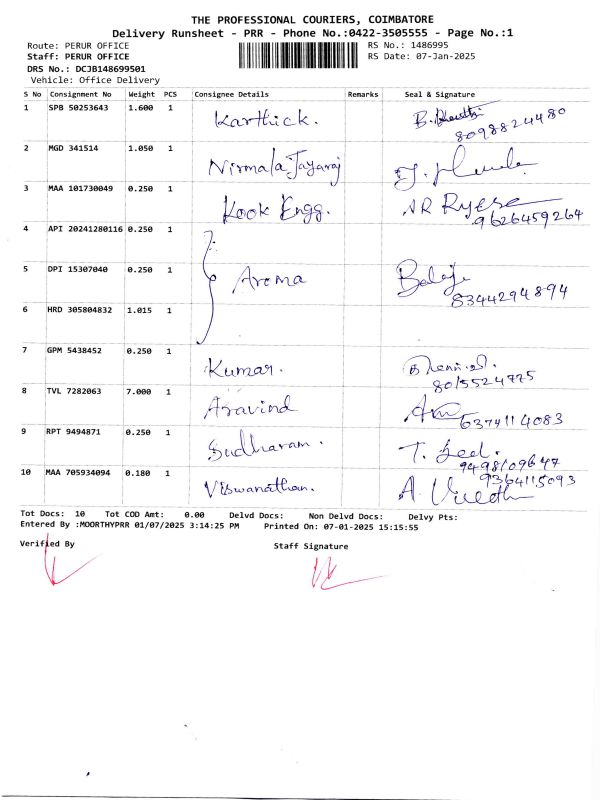 THE PROFESSIONAL COURIERS, COIMBATORE
Delivery Runsheet - PRR - Phone No.:0422-3505555 - Page No.:1
Route: PERUR OFFICE RS No.: 1486995
Staff: PERUR OFFICE RS Date: 07-Jan-2025
DRS No.: DCJB148699501
Vehicle: Office Delivery
S No Consignment No Weight PCS Consignee Details Remarks Seal & Signature
1 SPB 50253643 1.600 1 Karthick. B.
8098824480
2 MGD 341514 1.050 1 Nirmala Jayaraj J.
3 MAA 101730049 0.250 1 Kook Engg. NR
9626459264
4 API 20241280116 0.250 1
5 DPI 15307040 0.250 1 Aroma Balaji
8344294894
6 HRD 305804832 1.015 1
7 GPM 5438452 0.250 1 Kumar.
8015524775
8 TVL 7282063 7.000 1 Aravind
6374114083
9 RPT 9494871 0.250 1 Sudharam. T.
9498109647
10 MAA 705934094 0.180 1 Viswanathan. 9364115093
A.
Tot Docs: 10 Tot COD Amt: 0.00 Delvd Docs: Non Delvd Docs: Delvy Pts:
Entered By :MOORTHYPRR 01/07/2025 3:14:25 PM Printed On: 07-01-2025 15:15:55
Verified By Staff Signature